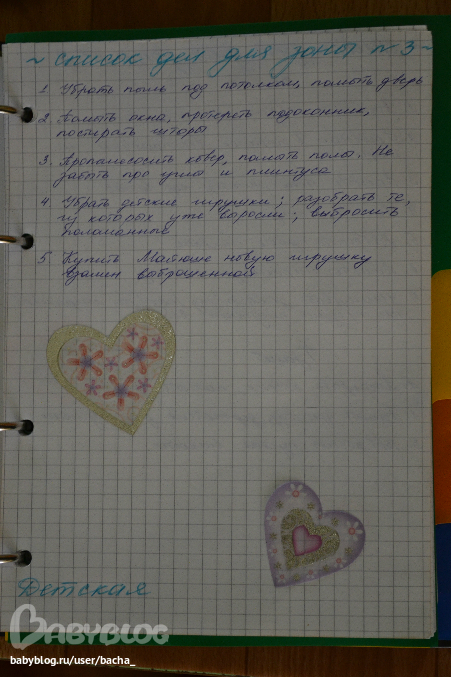 ~ Список дел для зоны №3 ~
1. Убрать пыль под потолком, помыть дверь
2. Помыть окна, протереть подоконник,
постирать шторы
3. Пропылесосить ковер, помыть полы. Не
забыть про углы и плинтуса
4. Убрать детские игрушки; разобрать те,
из которых уже выросли; выбросить
поломанные
5. Купить Матюше новую игрушку
взамен выброшенной
Детская
BABYBLOG
babyblog.ru/user/bacha_